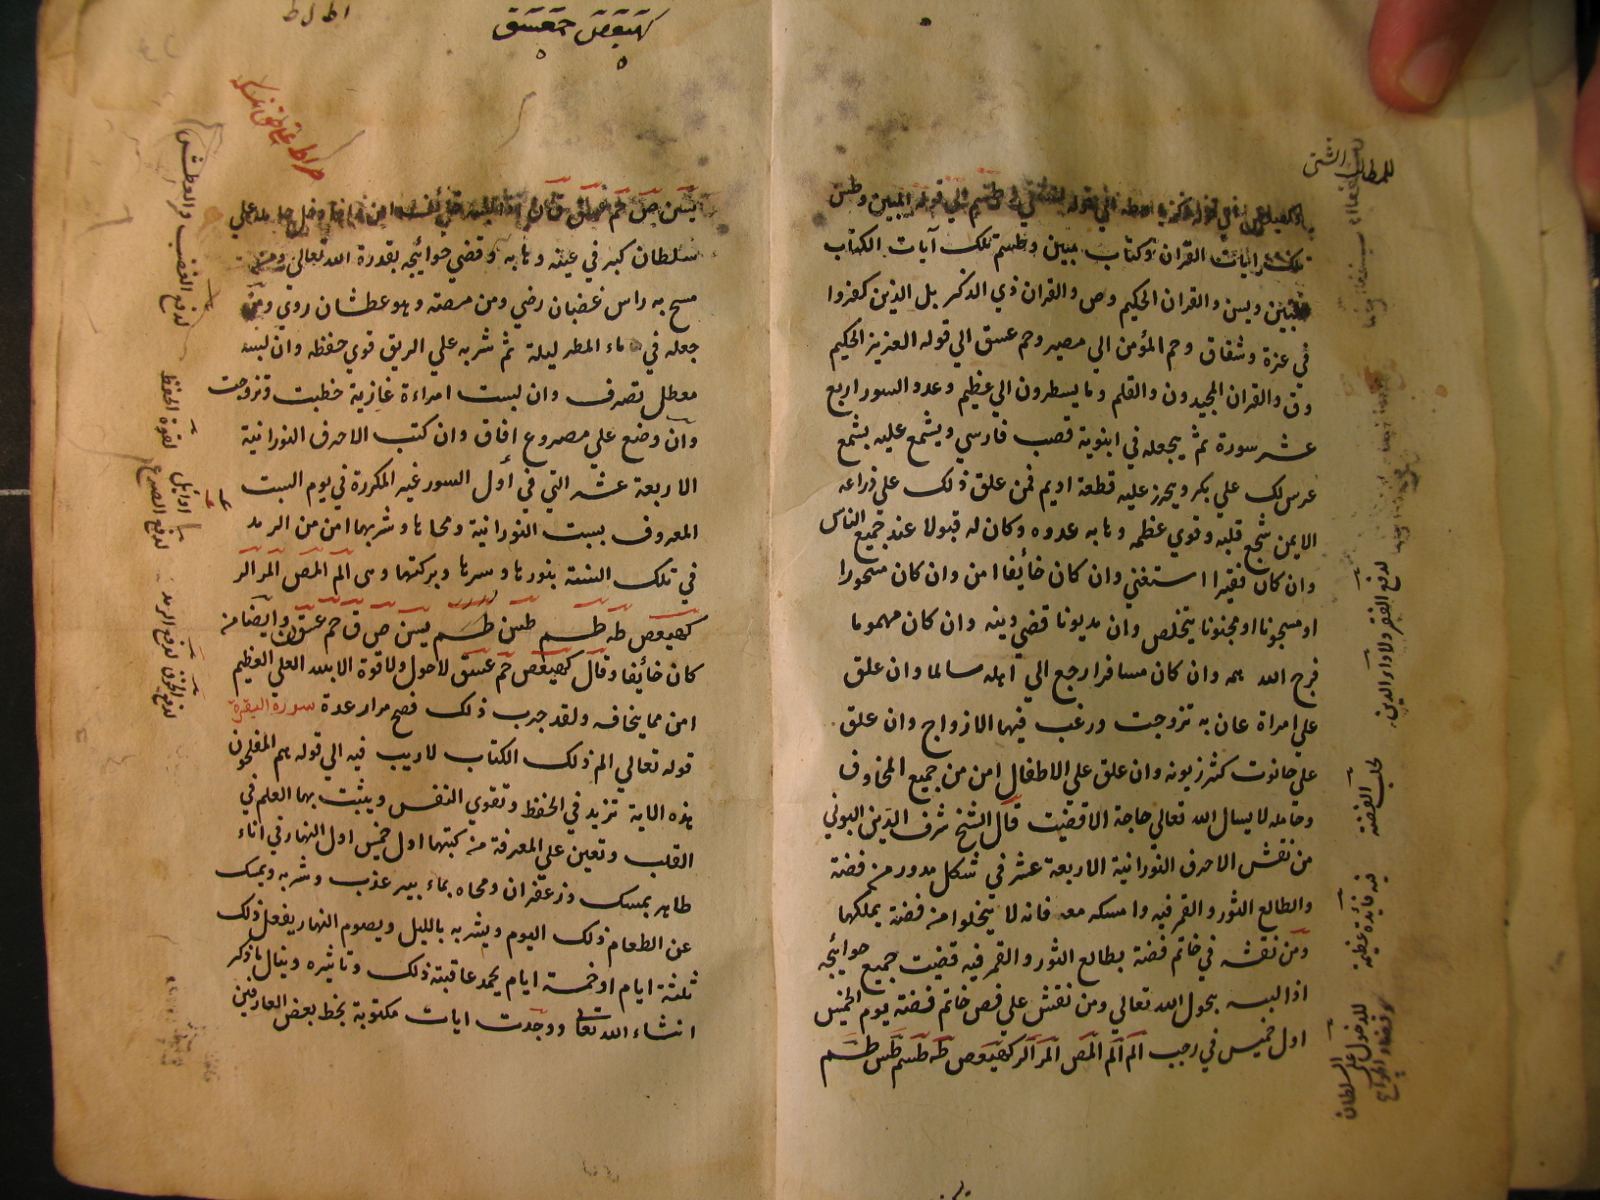 للمطالب الشتى
تلك ايات القران وكتاب مبين وطسم تلك آيات الكتاب
المبين ويسن والقران الحكيم وص والقران ذي الذكر بل الذين كفروا
في عزة وشقاق وحم المؤمن الي مصير وحم عسق الي قوله العزيز الحكيم
وق والقران المجيد ون والقلم وما يسطرون الي عظيم وعدد السور اربع
عشر سورة ثم يجعله في انبوبة قصب فارسي ويشمع عليه بشمع
عرس لك علي بكر ويخرز عليه قطعة اديم فمن علق ذلك علي ذراعه
الايمن شجع قلبه وقوي عظمه وهابه عدوه وكان له قبولا عند جميع الناس
وان كان فقيرا استغني وان كان خائفا امن وان كان مسحورا
او مسجونا او مجنونا يتخلص وان مديونا قضي دينه وان كان مهموما
فرج الله همه وان كان مسافرا رجع الي اهله سالما وان علق
علي امراة عان به تزوجت ورغب فيها الازواج وان علق
علي حانوت كثر زبونه وان علق علي الاطفال امن من جميع المخاوف
وحامله لا يسال الله تعالي حاجة الا قضيت قال الشيخ شرف الدين البوني
من نقش الاحرف النورانية الاربعة عشر في شكل مدور من فضة
والطالع الثور والقمر فيه وامسكه معه فانه لا يخلوا من فضة يملكها
ومن نقشه في خاتم فضة بطالع الثور والقمر فيه قضيت جميع حوائجه
اذا لبسه بحول الله تعالي ومن نقش علي فص خاتم فضة يوم الخميس
اول خميس في رجب الم الم المص المر الر كهيعص طه طسم طس طسم
لدفع الفقر ولاداء الدين
لجلب الفضة
فيه فائدة عظيمة
للدخول علي السلطان
وقضاء الحوائج
كهيعص حمعسق
يسن ص حم
سلطان كبر في عينه وهابه وقضي حوائجه بقدرة الله تعالي ومن
مسح به راس غضبان رضي ومن مصته وهو عطشان روي ومن
جعله في ماء المطر ليلة ثم شربه علي الريق قوي حفظه وان لبسه
معطل تصرف وان لبست امراءة عازبة خطبت وتزوجت
وان وضع علي مصروع افاق وان كتب الاحرف النورانية
الاربعة عشر التي في أول السور غير المكررة في يوم السبت
المعروف بسبت النورانية ومحاها وشربها امن من الرمد
في تلك السنة بنورها وسرها وبركتها وهي الم المص المر الر
كهيعص طه طسم طس طسم يسن ص ق حم عسق ن وايضا من
كان خائفا وقال كهيعص حم عسق لاحول ولاقوة الا بالله العلي العظيم
امن مما يخافه ولقد جرب ذلك فصح مرار عدة سورة البقرة
قوله تعالي الم ذلك الكتاب لاريب فيه الي قوله هم المفلحون
هذه الاية تزيد في الحفظ وتقوي النفس ويثبت بها العلم في
القلب وتعين علي المعرفة من كتبها اول خميس اول النهار في اناء
طاهر بمسك وزعفران ومحاه بماء بير عذب وشربه ويمسك
عن الطعام ذلك اليوم ويشربه بالليل ويصوم النهار يفعل ذلك
ثلثة ايام او خمسة ايام يحمد عاقبة ذلك وتاثيره وينال ما ذكر
انشاء الله تعا ووجدت ايات مكتوبة بخط بعض العارفين
لدفع الغضب والعطش
لقوة الحفظ
لدفع الصرع
لدفع الرمد
لدفع الخوف